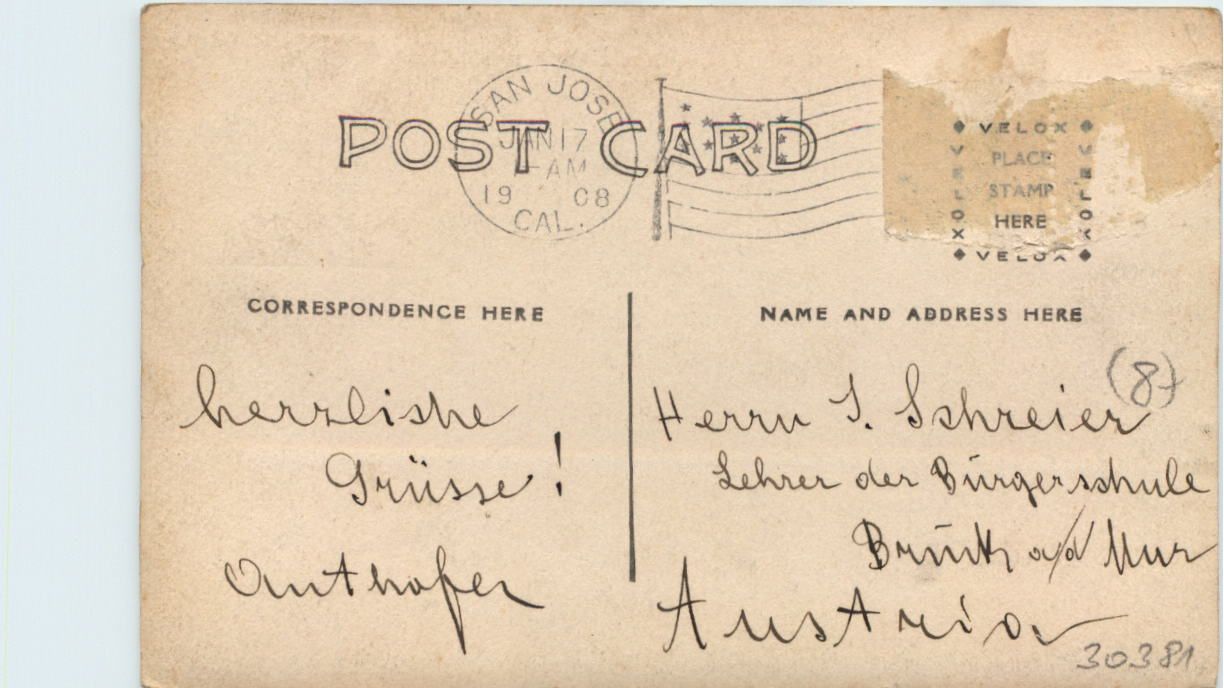 POST CARD
SAN JOSE
JAN 17
-AM
19 08
CAL.
VELOX
VELOX
VELOX
PLACE
STAMP
HERE
VELOX
CORRESPONDENCE HERE
NAME AND ADDRESS HERE
(8)
herzliche
Grüsse!
Authofer
Herrn J. Schreier
Lehrer der Bürgerschule
Bruck a/d Mur
Austria
30381